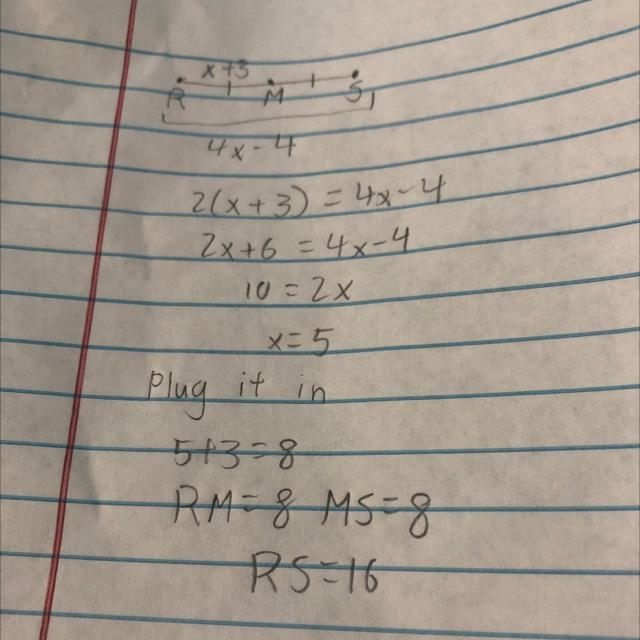 x+3
R M S
4x-4
2(x+3)=4x-4
2x+6=4x-4
10=2x
x=5
Plug it in
5+3=8
RM=8 MS=8
RS=16